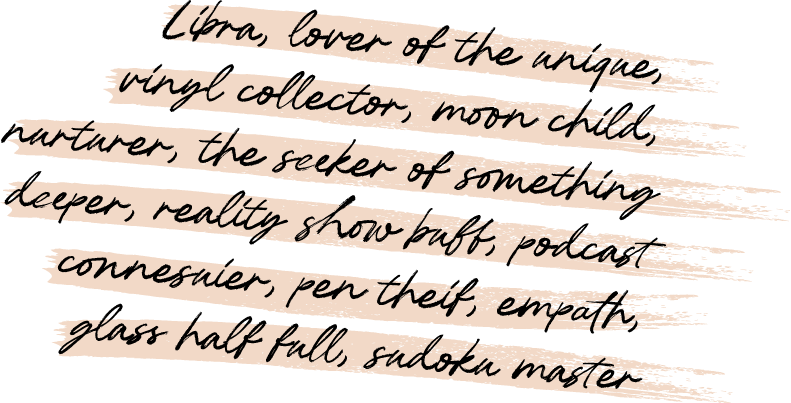 Libra, lover of the unique,
vinyl collector, moon child,
nurturer, the seeker of something
deeper, reality show buff, podcast
connesuier, pen theif, empath,
glass half full, sudoku master